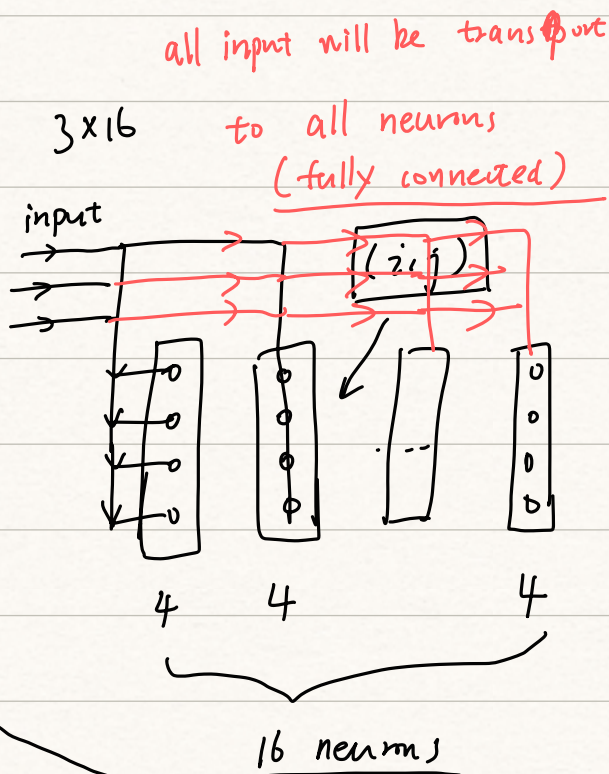 all input will be transport
3×16
to all neurons
(fully connected)
input
(i,j)
4 4 4
16 neurons